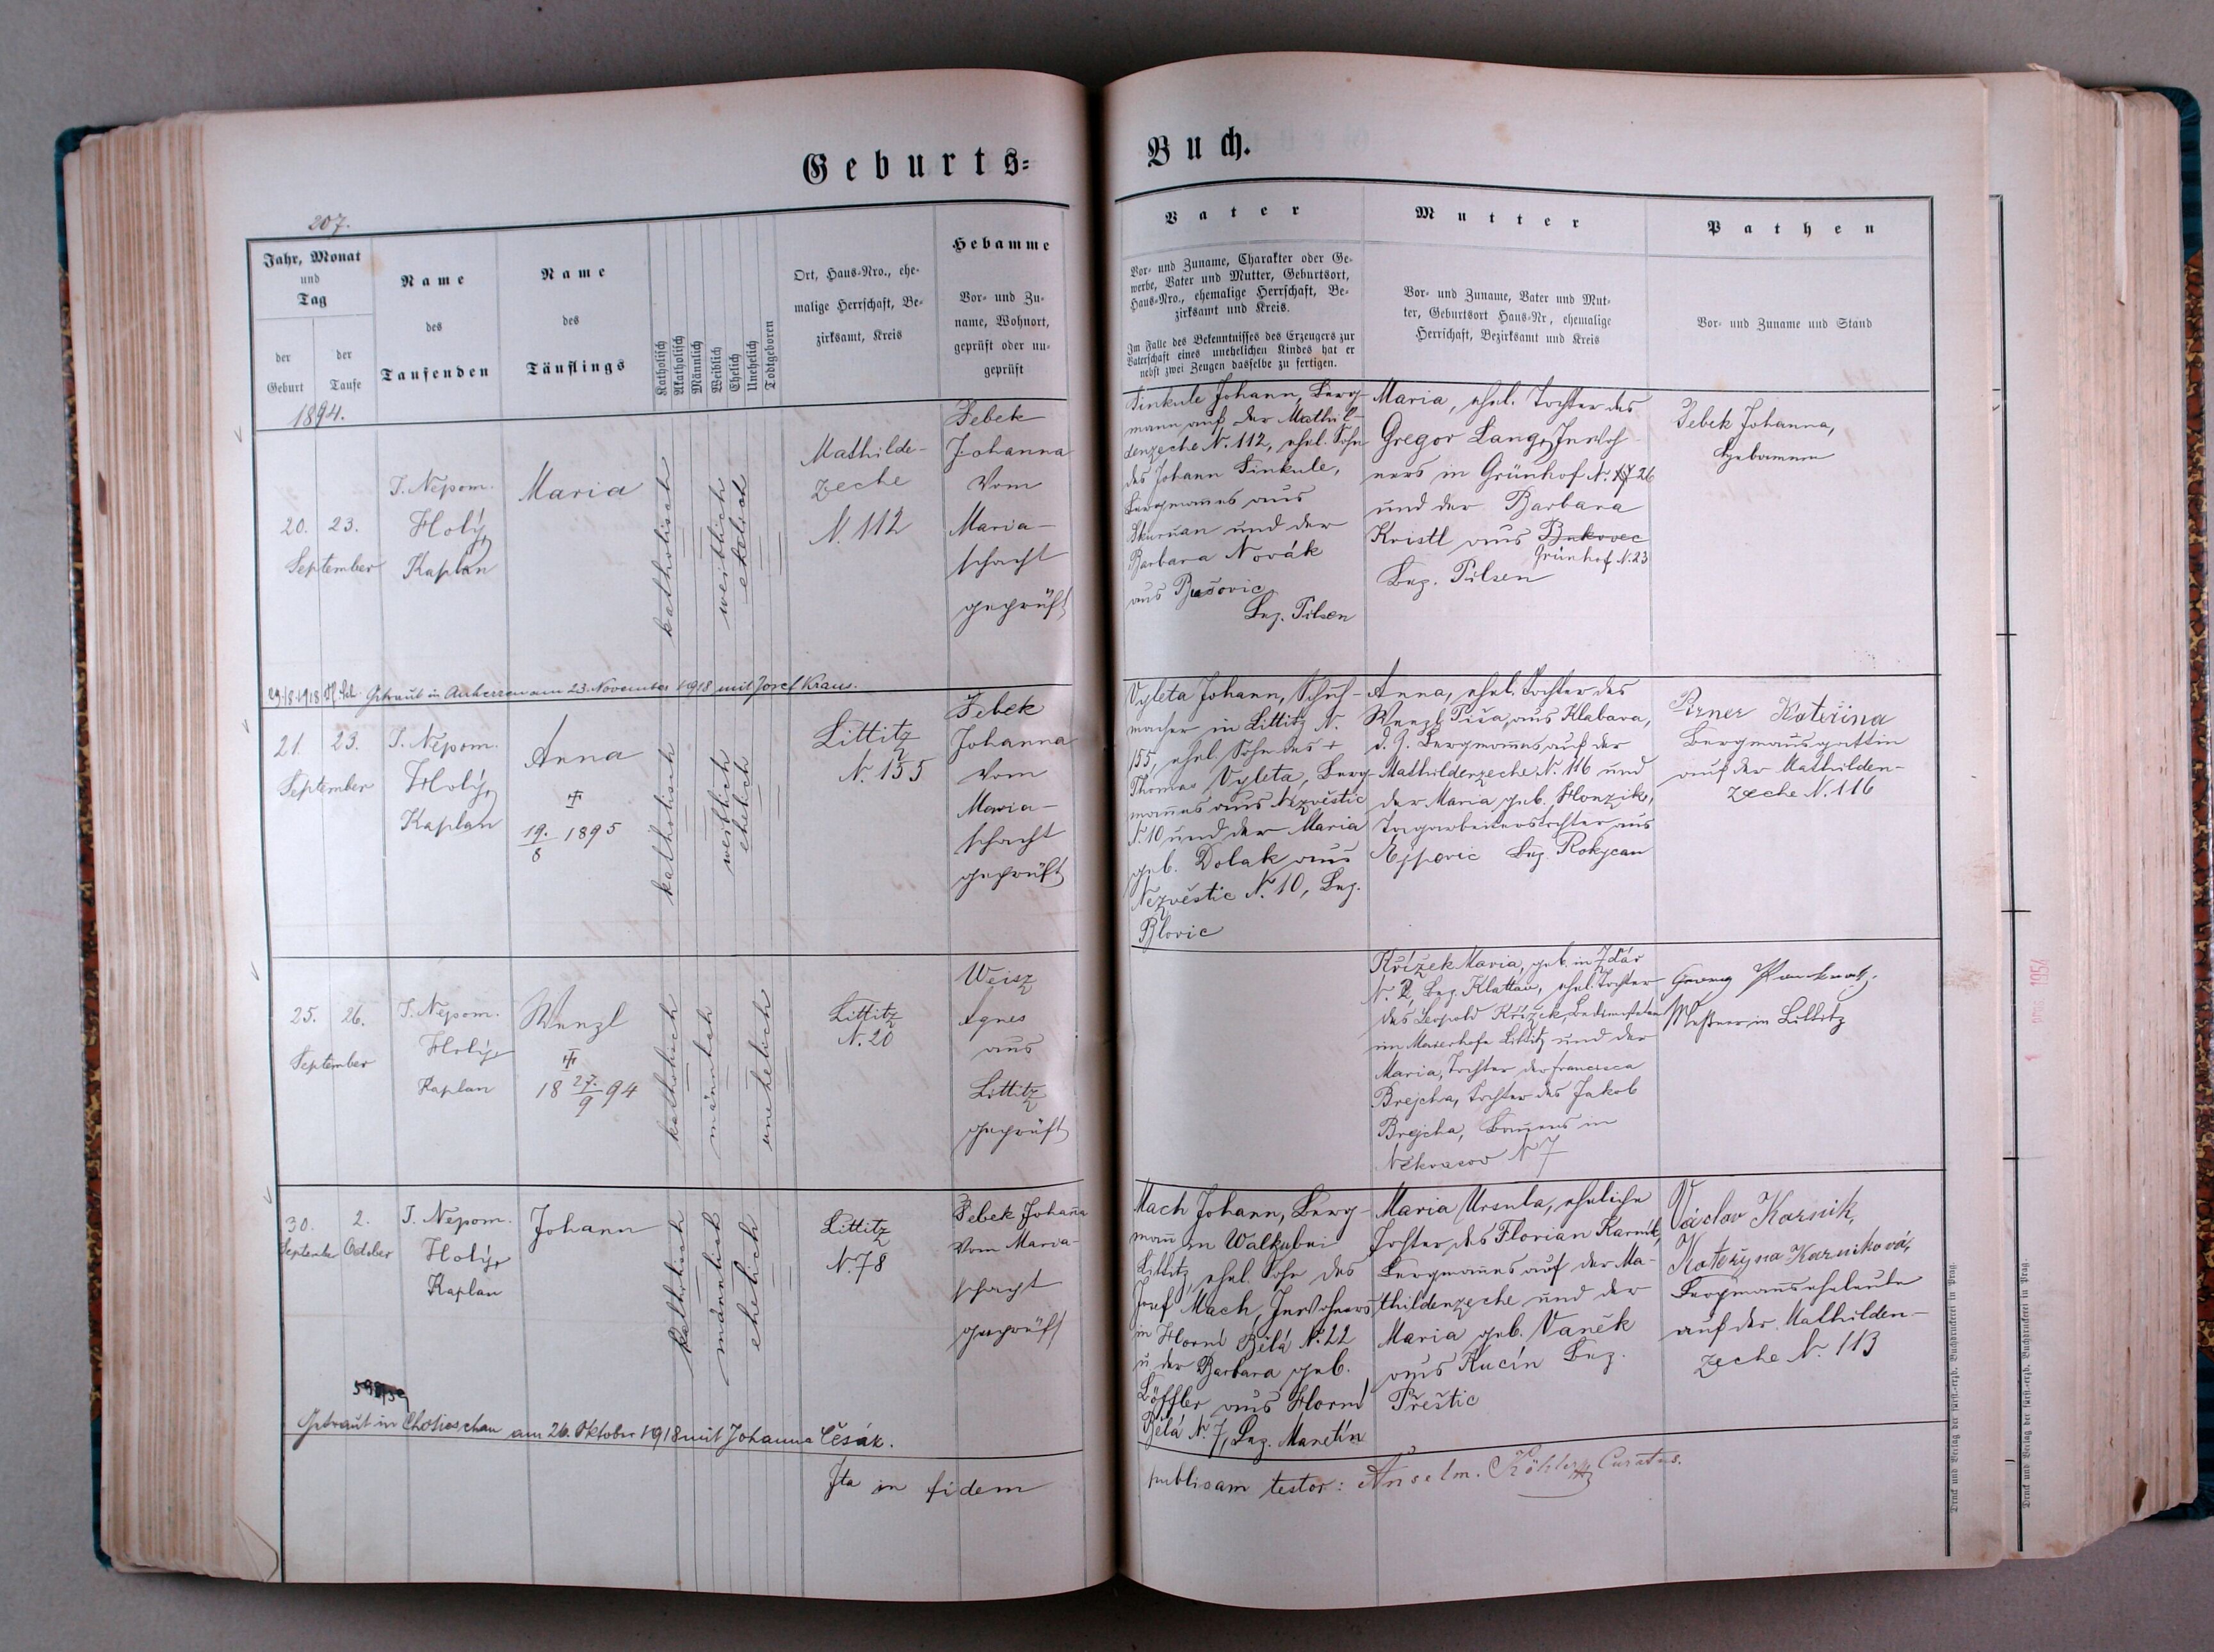 Geburts=
Buch.
207.
Jahr, Monat
und
Tag
der
Geburt
der
Taufe
Name
des
Taufenden
Name
des
Täuflings
Katholisch
Akatholisch
Männlich
Weiblich
Ehelich
Unehelich
Todtgeboren
Ort, Haus-Nro., ehe-
malige Herrschaft, Be-
zirksamt, Kreis
Hebamme
Vor- und Zu-
name, Wohnort,
geprüft oder un-
geprüft
Vater
Vor- und Zuname, Charakter oder Ge-
werbe, Vater und Mutter, Geburtsort,
Haus-Nro., ehemalige Herrschaft, Be-
zirksamt und Kreis.
Im Falle des Bekenntnisses des Erzeugers zur
Vaterschaft eines unehelichen Kindes hat er
nebst zwei Zeugen dasselbe zu fertigen.
Mutter
Vor- und Zuname, Vater und Mut-
ter, Geburtsort Haus-Nr, ehemalige
Herrschaft, Bezirksamt und Kreis
Pathen
Vor- und Zuname und Stand
1894.
20. 23.
September
J. Nepom.
Holý,
Kaplan
Maria
katholisch
weiblich
ehelich
Mathilde-
zeche
N. 112
Bebek
Johanna
vom
Maria-
schacht
geprüft
Sinkule Johann, Berg-
mann auf der Mathil-
denzeche N. 112, ehel. Sohn
des Johann Sinkule,
Bergmannes aus
Skurňan und der
Barbara Novák
aus Bušovic
Bez. Pilsen
Maria, ehel. Tochter des
Gregor Lang, Inwoh-
ners in Grünhof N. 26
und der Barbara
Kristl aus Bukovec
Grünhof N. 23
Bez. Pilsen
Bebek Johanna,
Hebamme
Getraut in Auherzen am 23. November 1918 mit Josef Kraus.
21. 23.
September
J. Nepom.
Holý,
Kaplan
Anna
19./8 1895
katholisch
weiblich
ehelich
Littitz
N. 155
Bebek
Johanna
vom
Maria-
schacht
geprüft
Vyleta Johann, Schuh-
macher in Littitz N.
155, ehel. Sohn des +
Thomas Vyleta, Berg-
mannes aus Nezvěstic
N. 10 und der Maria
geb. Dolak aus
Nezvěstic N. 10, Bez.
Blovic
Anna, ehel. Tochter des
Wenzl Piša, aus Klabava,
d. Z. Bergmannes auf der
Mathildenzeche N. 116 und
der Maria geb. Honzik,
Tagarbeiterstochter aus
Ejpovic Bez. Rokycan
Pirner Kateřina
Bergmannsgattin
auf der Mathilden-
zeche N. 116
25. 26.
September
J. Nepom.
Holý,
Kaplan
Wenzl
18 27./9 94
katholisch
männlich
unehelich
Littitz
N. 20
Weisz
Agnes
aus
Littitz
geprüft
Křížek Maria, geb. in Ždár
N. 2, Bez. Klattau, ehel. Tochter
des Leopold Křížek, Bediensteten
im Maierhofe Littitz und der
Maria, Tochter der Francisca
Brejcha, Tochter des Jakob
Brejcha, in
N 7
Georg
Meßner in Littitz
30. 2.
September October
J. Nepom.
Holý,
Kaplan
Johann
katholisch
männlich
ehelich
Littitz
N. 78
Bebek Johanna
vom Maria-
schacht
geprüft
Mach Johann, Berg-
mann in Walkabei
Littitz, ehel. Sohn des
Josef Mach, Inwohners
in Horní Bělá N. 22
u. der Barbara geb.
Löffler aus Horní
Bělá N. 7, Bez. Manetín
Maria Ursula, eheliche
Tochter des Florian Karnik,
Bergmannes auf der Ma-
thildenzeche und der
Maria geb. Vaněk
aus Kucín Bez.
Přeštic
Václav Karnik,
Kateřyna Karniková,
Bergmannseheleute
auf der Mathilden-
zeche N. 113
Getraut in Chotieschau am 26. Oktober 1918 mit Johanna Česák.
Ita in fidem
publicam testor: Anselm. Köhler, Curatus.
Druck und Verlag der fürst.-erzb. Buchdruckerei in Prag.
Druck und Verlag der fürst.-erzb. Buchdruckerei in Prag.
1954